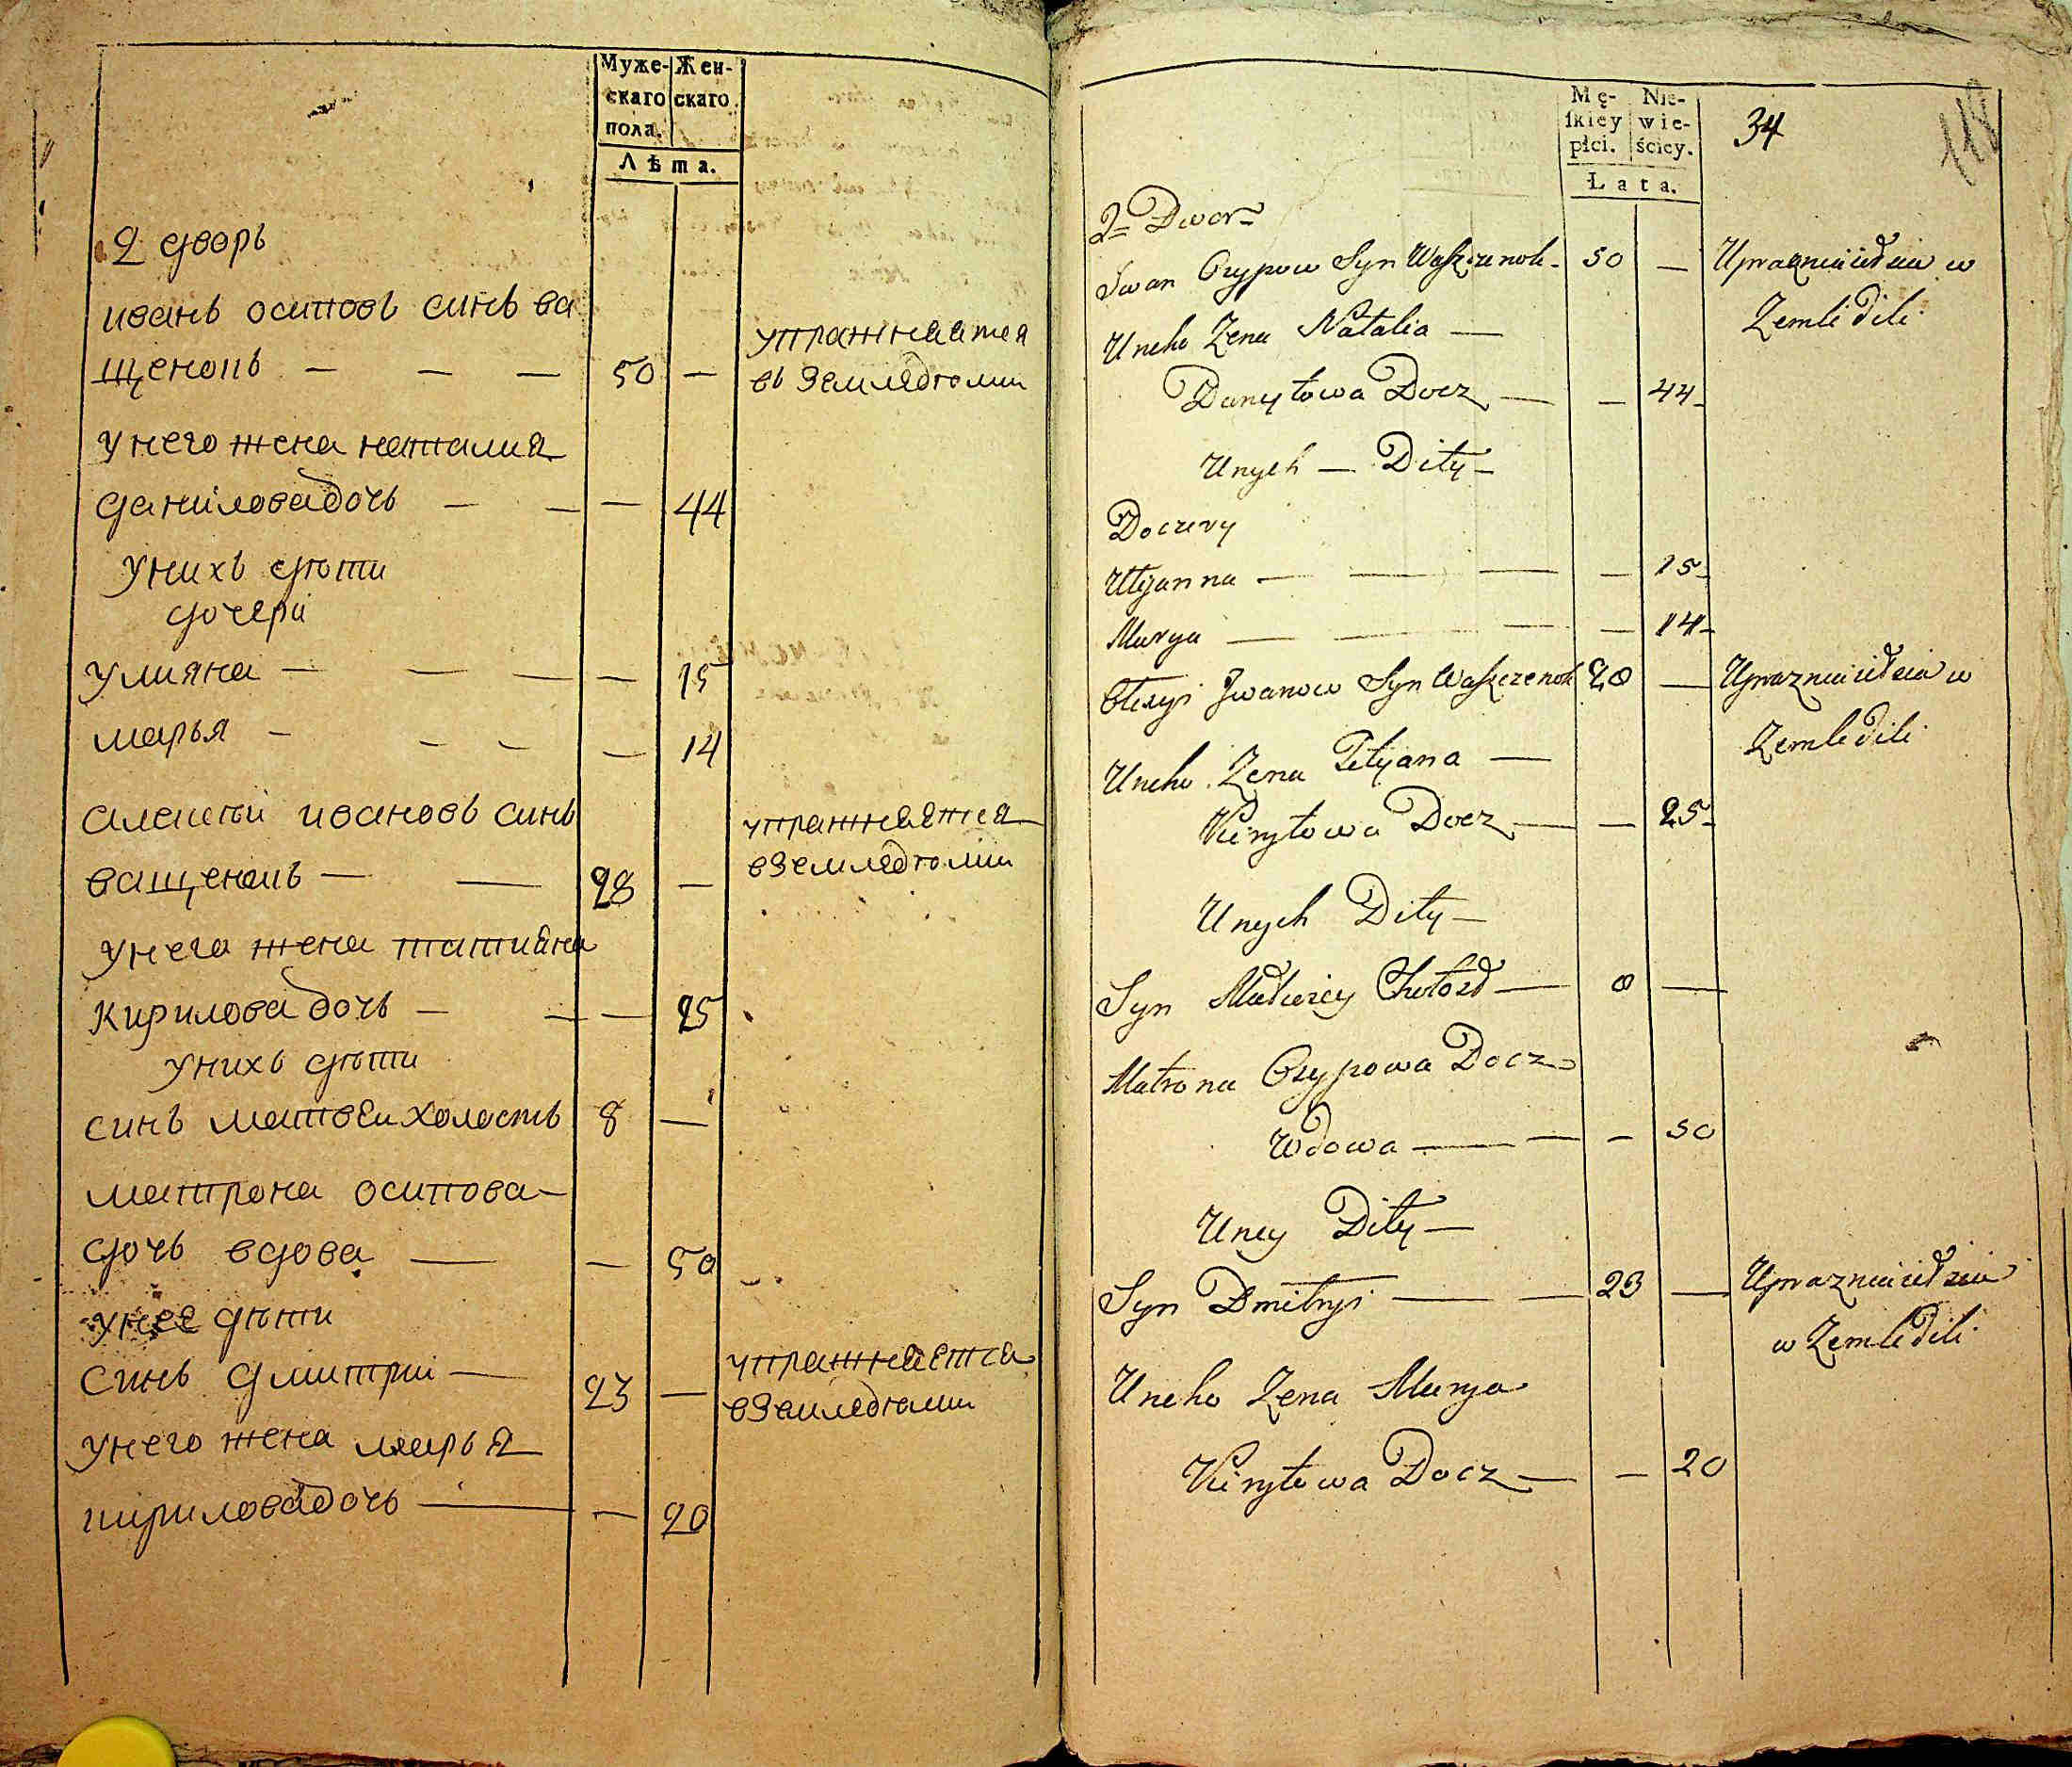 Муже- Жен-
скаго скаго
пола.
Лѣта.
2 дворь
ивань осиповь синь ва
щенокь — — — 50 — упражняется
вь земледѣлии
унего жена наталия
данилова дочь — — — 44
унихь дѣти
дочери
улияна — — — — 15
марья — — — — 14
алексѣй ивановь синь упражняется
ващенокь — — 28 — вземледѣлии
унего жена татияна
кирилова дочь — — — 25
унихь дѣти
синь матвеи холость 8 —
матрона осипова —
дочь вдова — — 50
унее дѣти
синь дмитрий — 23 — упражняется
вземледѣлии
унего жена марья
кирилова дочь — — 20
Mę- Nie-
ſkiey wie-
płci. ściey.
Lata.
34
118
2= Dwor=
Iwan Osypow Syn Waszczenok - 50 — Uprazniaietsia w
Zemledili
Uneho Zena Natalia —
Danyłowa Docz — — 44 -
Unych — Dity —
Doczery
Ulijanna — — — — 15 -
Marya — — — — 14 -
Ołexyi Iwanow Syn Waszczenok 28 — Uprazniaietsia w
Zemledili
Uneho Zena Tetyana —
Kiryłowa Docz — — 25 -
Unych Dity —
Syn Matwiey Chołost — 8 —
Matrona Osypowa Docz
Wdowa — — — 50
Uney Dity —
Syn Dmitryi — — 23 — Uprazniaietsia
w Zemledili
Uneho Zena Marya
Kiryłowa Docz — — 20